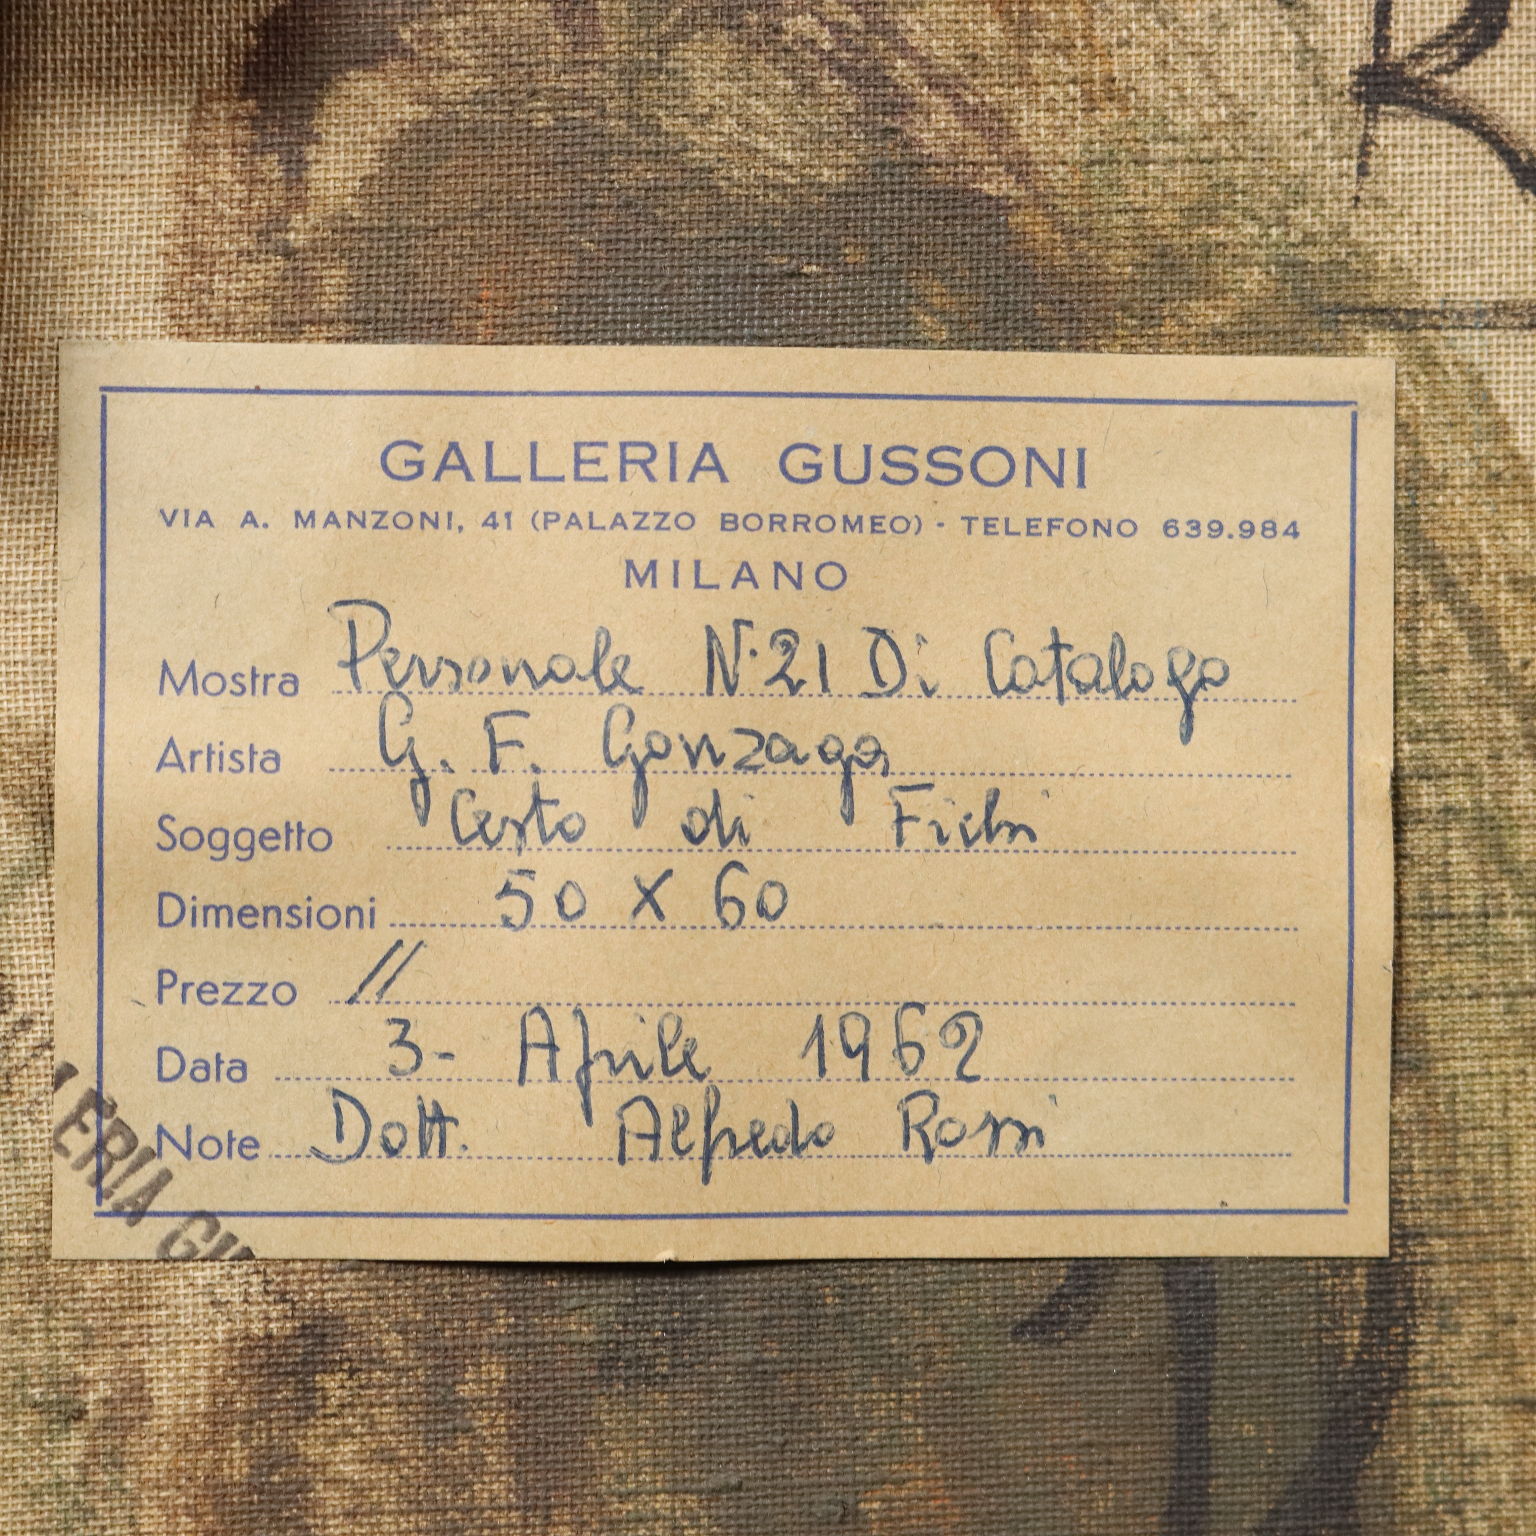 R
GALLERIA GUSSONI
VIA A. MANZONI, 41 (PALAZZO BORROMEO) - TELEFONO 639.984
MILANO
Mostra Personale N.21 Di Catalogo
Artista G. F. Gonzaga
Soggetto Cesto di Fichi
Dimensioni 50 X 60
Prezzo //
Data 3- Aprile 1962
Note Dott. Alfredo Rossi
LERIA GU